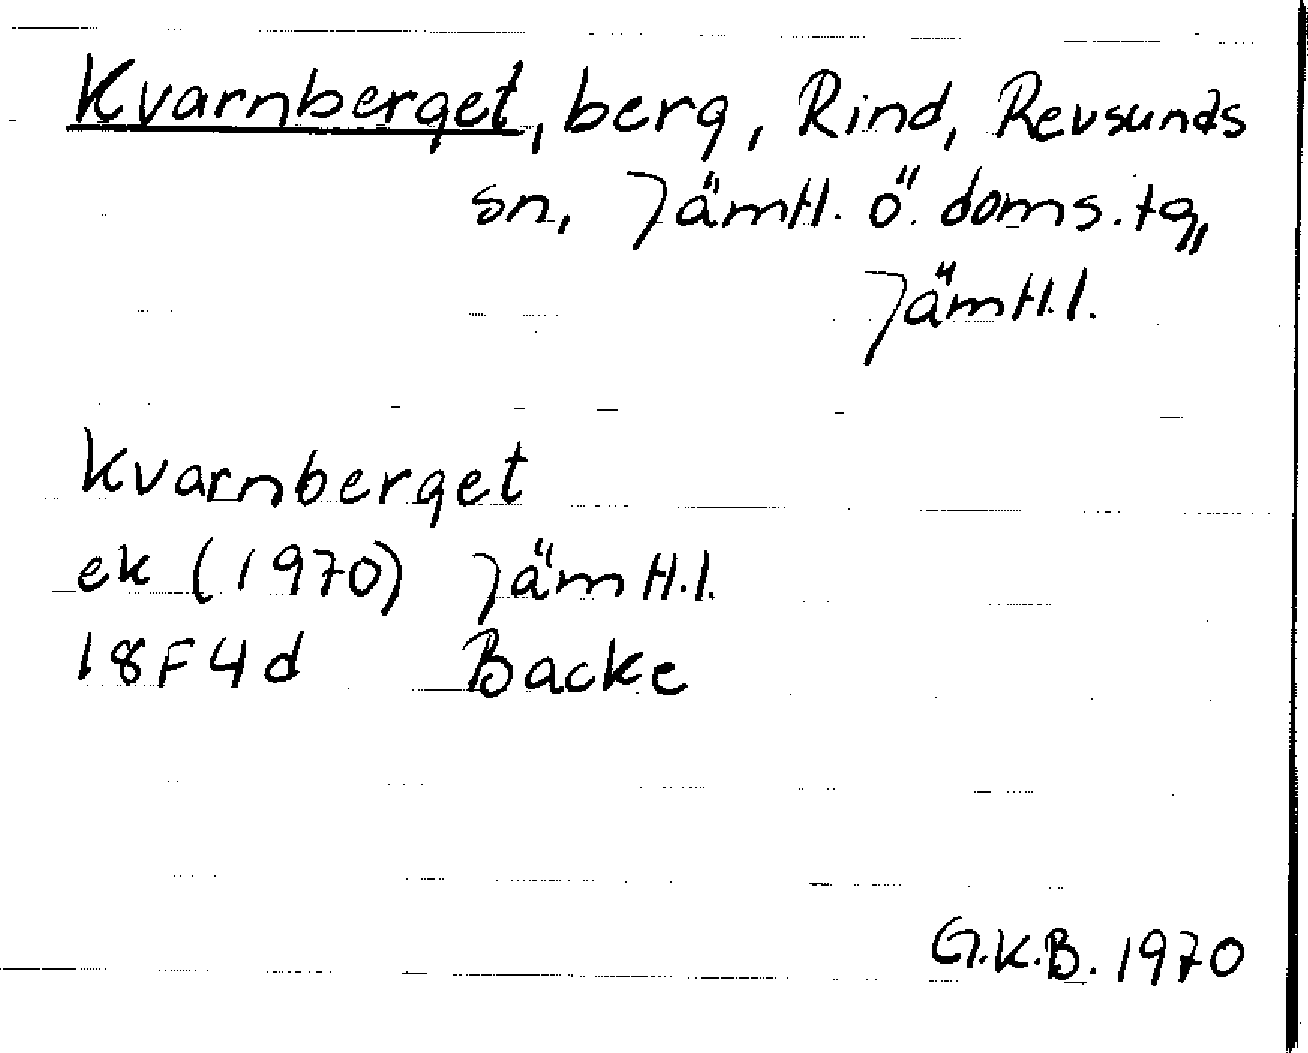 Kvarnberget, berg, Rind, Revsunds
sn, Jämtl. ö. doms. tg,
Jämtl. l.
Kvarnberget
ek (1970) Jämtl. l.
18F4d Backe
G.K.B. 1970